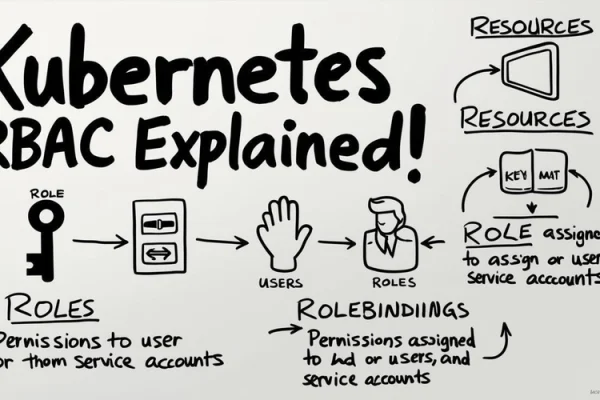 Kubernetes
RBAC Explained!
ROLE
USERS
ROLES
ROLES
Permissions to user
or thom service accounts
ROLEBINDIINGS
Permissions assigned
to hd or users, and
service accounts
RESOURCES
RESOURCES
KEY MAT
ROLE assigne
to assign or user
service accounts